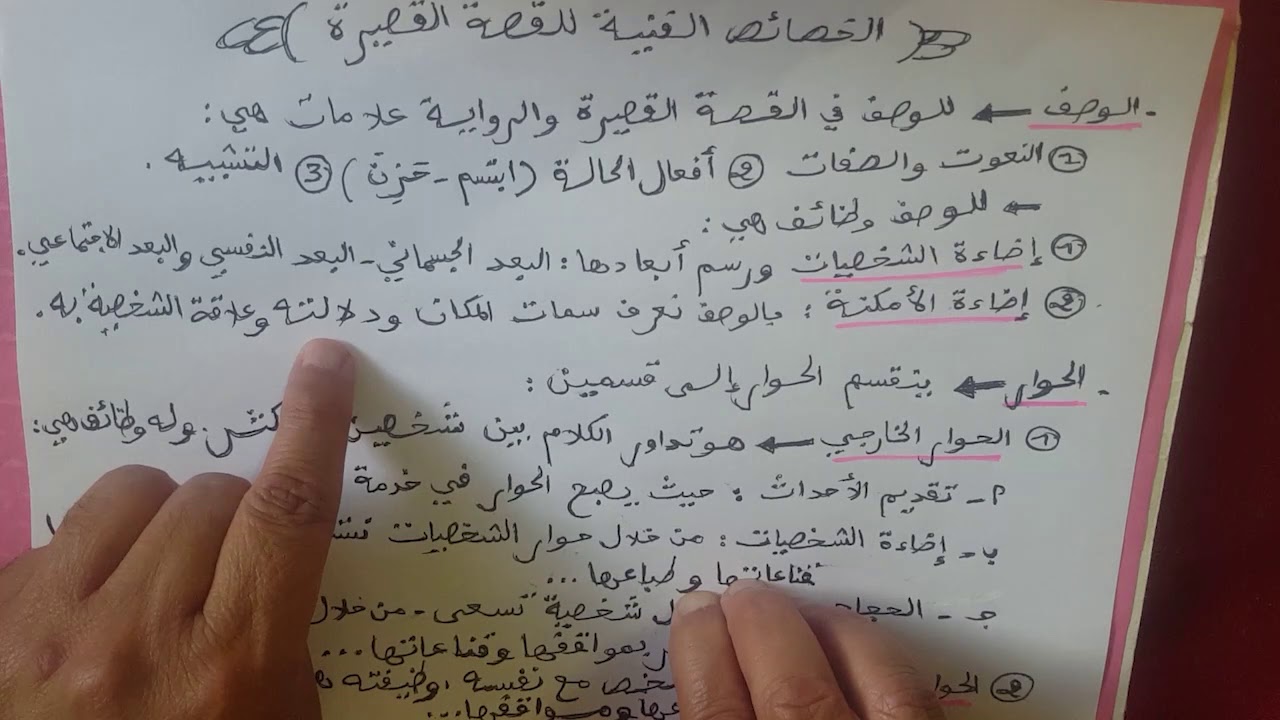 الخصائص الفنية للقصة القصيرة
- الوصف ← للوصف في القصة القصيرة والرواية علامات هي:
① النعوت والصفات ② أفعال الحالة (ابتسم - حَزِنَ) ③ التشبيه.
← للوصف وظائف هي:
① إضاءة الشخصيات ورسم أبعادها: البعد الجسماني - البعد النفسي والبعد الاجتماعي.
② إضاءة الأمكنة: بالوصف نعرف سمات المكان ودلالته وعلاقة الشخصية به.
- الحوار ← ينقسم الحوار إلى قسمين:
① الحوار الخارجي ← هو تداور الكلام بين شخصين وله وظائف هي:
أ - تقديم الأحداث: حيث يصبح الحوار في خدمة
ب - إضاءة الشخصيات: من خلال حوار الشخصيات
قناعاتها وطباعها...
ج - شخصية تسعى - من خلال
بمواقفها وقناعاتها...
② مع نفسه، وظيفته
ومواقفها...